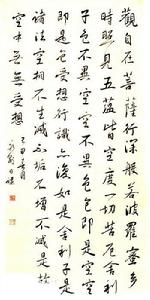 觀自在菩薩行深般若波羅蜜多
時照見五蘊皆空度一切苦厄舍利
子色不異空空不異色色即是空空
即是色受想行識亦復如是舍利子是
諸法空相不生不滅不垢不淨不增不減是故
空中無色無受想